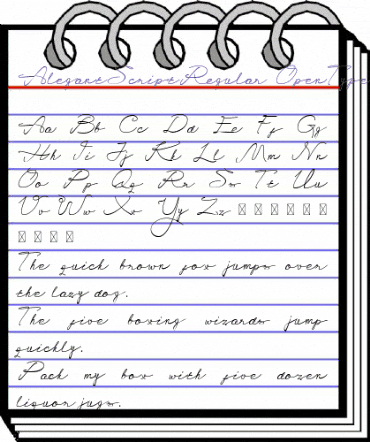 AlegantScriptRegular OpenType
Aa Bb Cc Dd Ee Ff Gg
Hh Ii Jj Kk Ll Mm Nn
Oo Pp Qq Rr Ss Tt Uu
Vv Ww Xx Yy Zz
The quick brown fox jumps over
the lazy dog.
The five boxing wizards jump
quickly.
Pack my box with five dozen
liquor jugs.